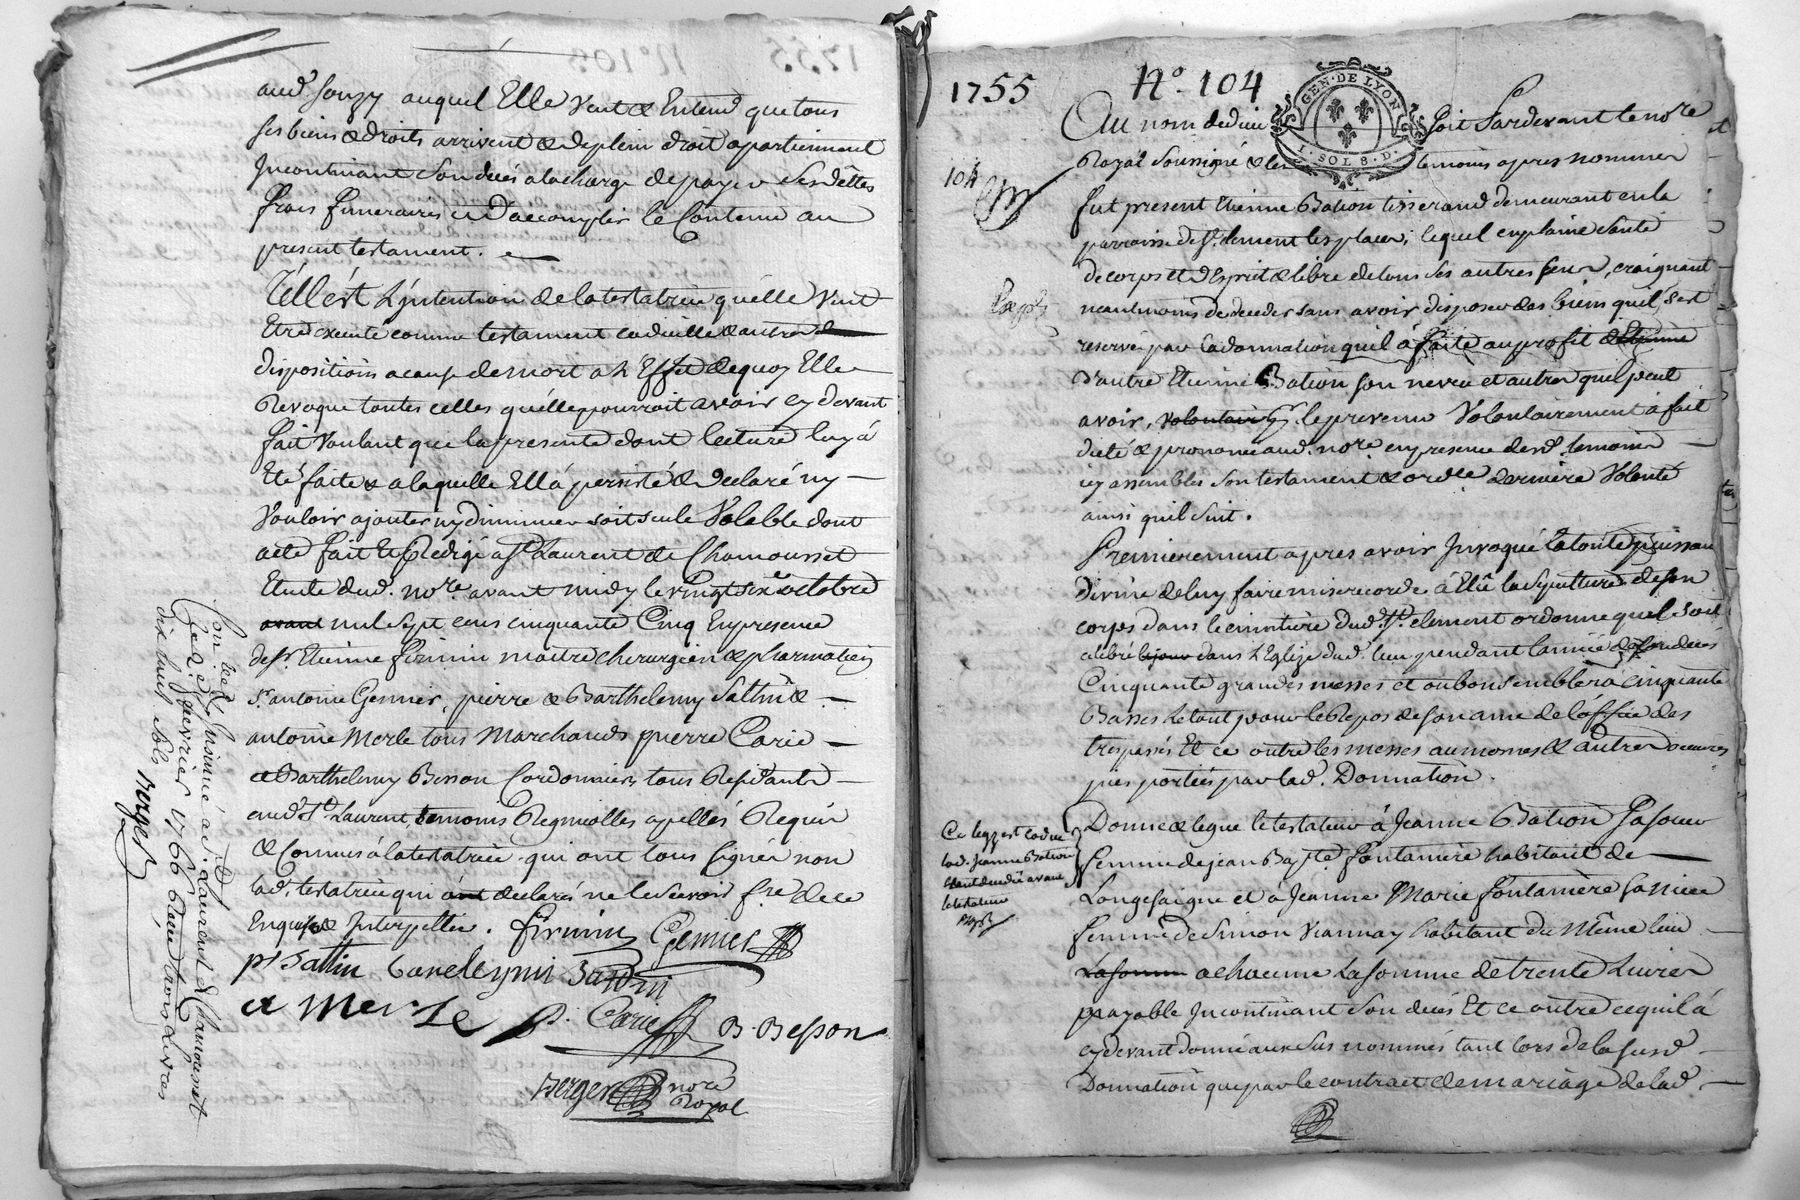 aud. Souzy auquel Elle Veut & Entend que tous
ses biens & droits arrivent & de plein droit apartiennent
Incontinant Son decés a la charge de payer Ses dettes
frais funeraires et D'accomplir le Contenu au
present testament.
Tell'ést L'jntention de la testatrice qu'elle Veut
Etre executé comme testament codicille & autres
dispositions a cause de mort a L'Effet de quoy Elle
Revoque toutes celles qu'elle pourroit avoir cy devant
fait Voulant que la presente dont lecture luy á
Eté faitte & a laquelle Ell'á persisté & declaré ny
Vouloir ajouter ny diminuer soit seule Valable dont
acte fait Et Redigé a St. Laurent de Chamousset
Etude dud. nore. avant midy le Vingt six octobre
avant mil Sept cens cinquante Cinq En presence
de sr. Etienne firmin maitre chirurgien & pharmatien
sr. antoine Gernier, pierre & Barthelemy Sattin &
antoine Merle tous Marchands pierre Carie
& Barthelemy Besson Cordonniers tous Residants
aud. St. Laurent, temoins Regnicolles apellés Requis
& Connus á la testatrice qui ont tous Signés non
lad. testatrice qui á declaré ne le Scavoir fre. de ce
Enquise & Interpellée. firmin Gernier
pr Sattin Bartelemi Sattin
a Merle P. Carie B. Besson
Berger nore Royal
Con. lled. & Insinué a St. Laurent de Chamousset
le fevrier 1766 Reçu trois Livres
dix huit sols Berger
1755 No. 104
GEN. DE LYON
1. SOL 8. D.
Au nom de dieu Soit Pardevant le nore
104
Royal Soussigné & les temoins apres nommés
fut present Etienne Bation tisserand demeurant en la
parroisse de St. clement les places, lequel en plaine Santé
de corps et d'Esprit & libre de tous Ses autres sens, craignant
neantmoins de deceder sans avoir disposer des biens qu'il s'est
reservés par la donnation qu'il á faite au profit d'Etienne
d'autre Etienne Bation son neveu et autres qu'il peut
avoir, Volontairem le prevenu Volontairement á fait
dicté & prononcé aud. nore. en presence desd. temoins
icy assemblés Son testament & ordre. derniere Volonté
ainsi qu'il Suit.
Premierement apres avoir Invoqué la toute puissance
divine de luy faire misericorde á Elû la Sepulture de son
corps dans le cimitiere dud. St. clement ordonne quel Soit
celebré dans L'Eglise dud. lieu pendant l'année de son deces
Cinquante grandes messes et ou bon semblera cinquante
Basses Le tout pour le Repos de son ame de l'office des
trepassés Et ce outre les messes aumosnes & autres oeuvres
pies portées par lad. Donnation.
Donne & legue le testateur á Jeanne Bation Sa soeur
femme de jean Bapte. fontaniere habitant de
Longesaigne et á Jeanne Marie fontaniere Sa niece
femme de Simon Viannay habitant du Même lieu
La somme a chacune La somme de trente Livres
payable Incontinant Son deces Et ce outre ce quil á
cy devant donné aux Sus nommés tant lors de la susd.
Donnation que par le contrat de mariage de lad.
Ce legs est caduc
lad. Jeanne Bation
etant decedée avant
le testateur